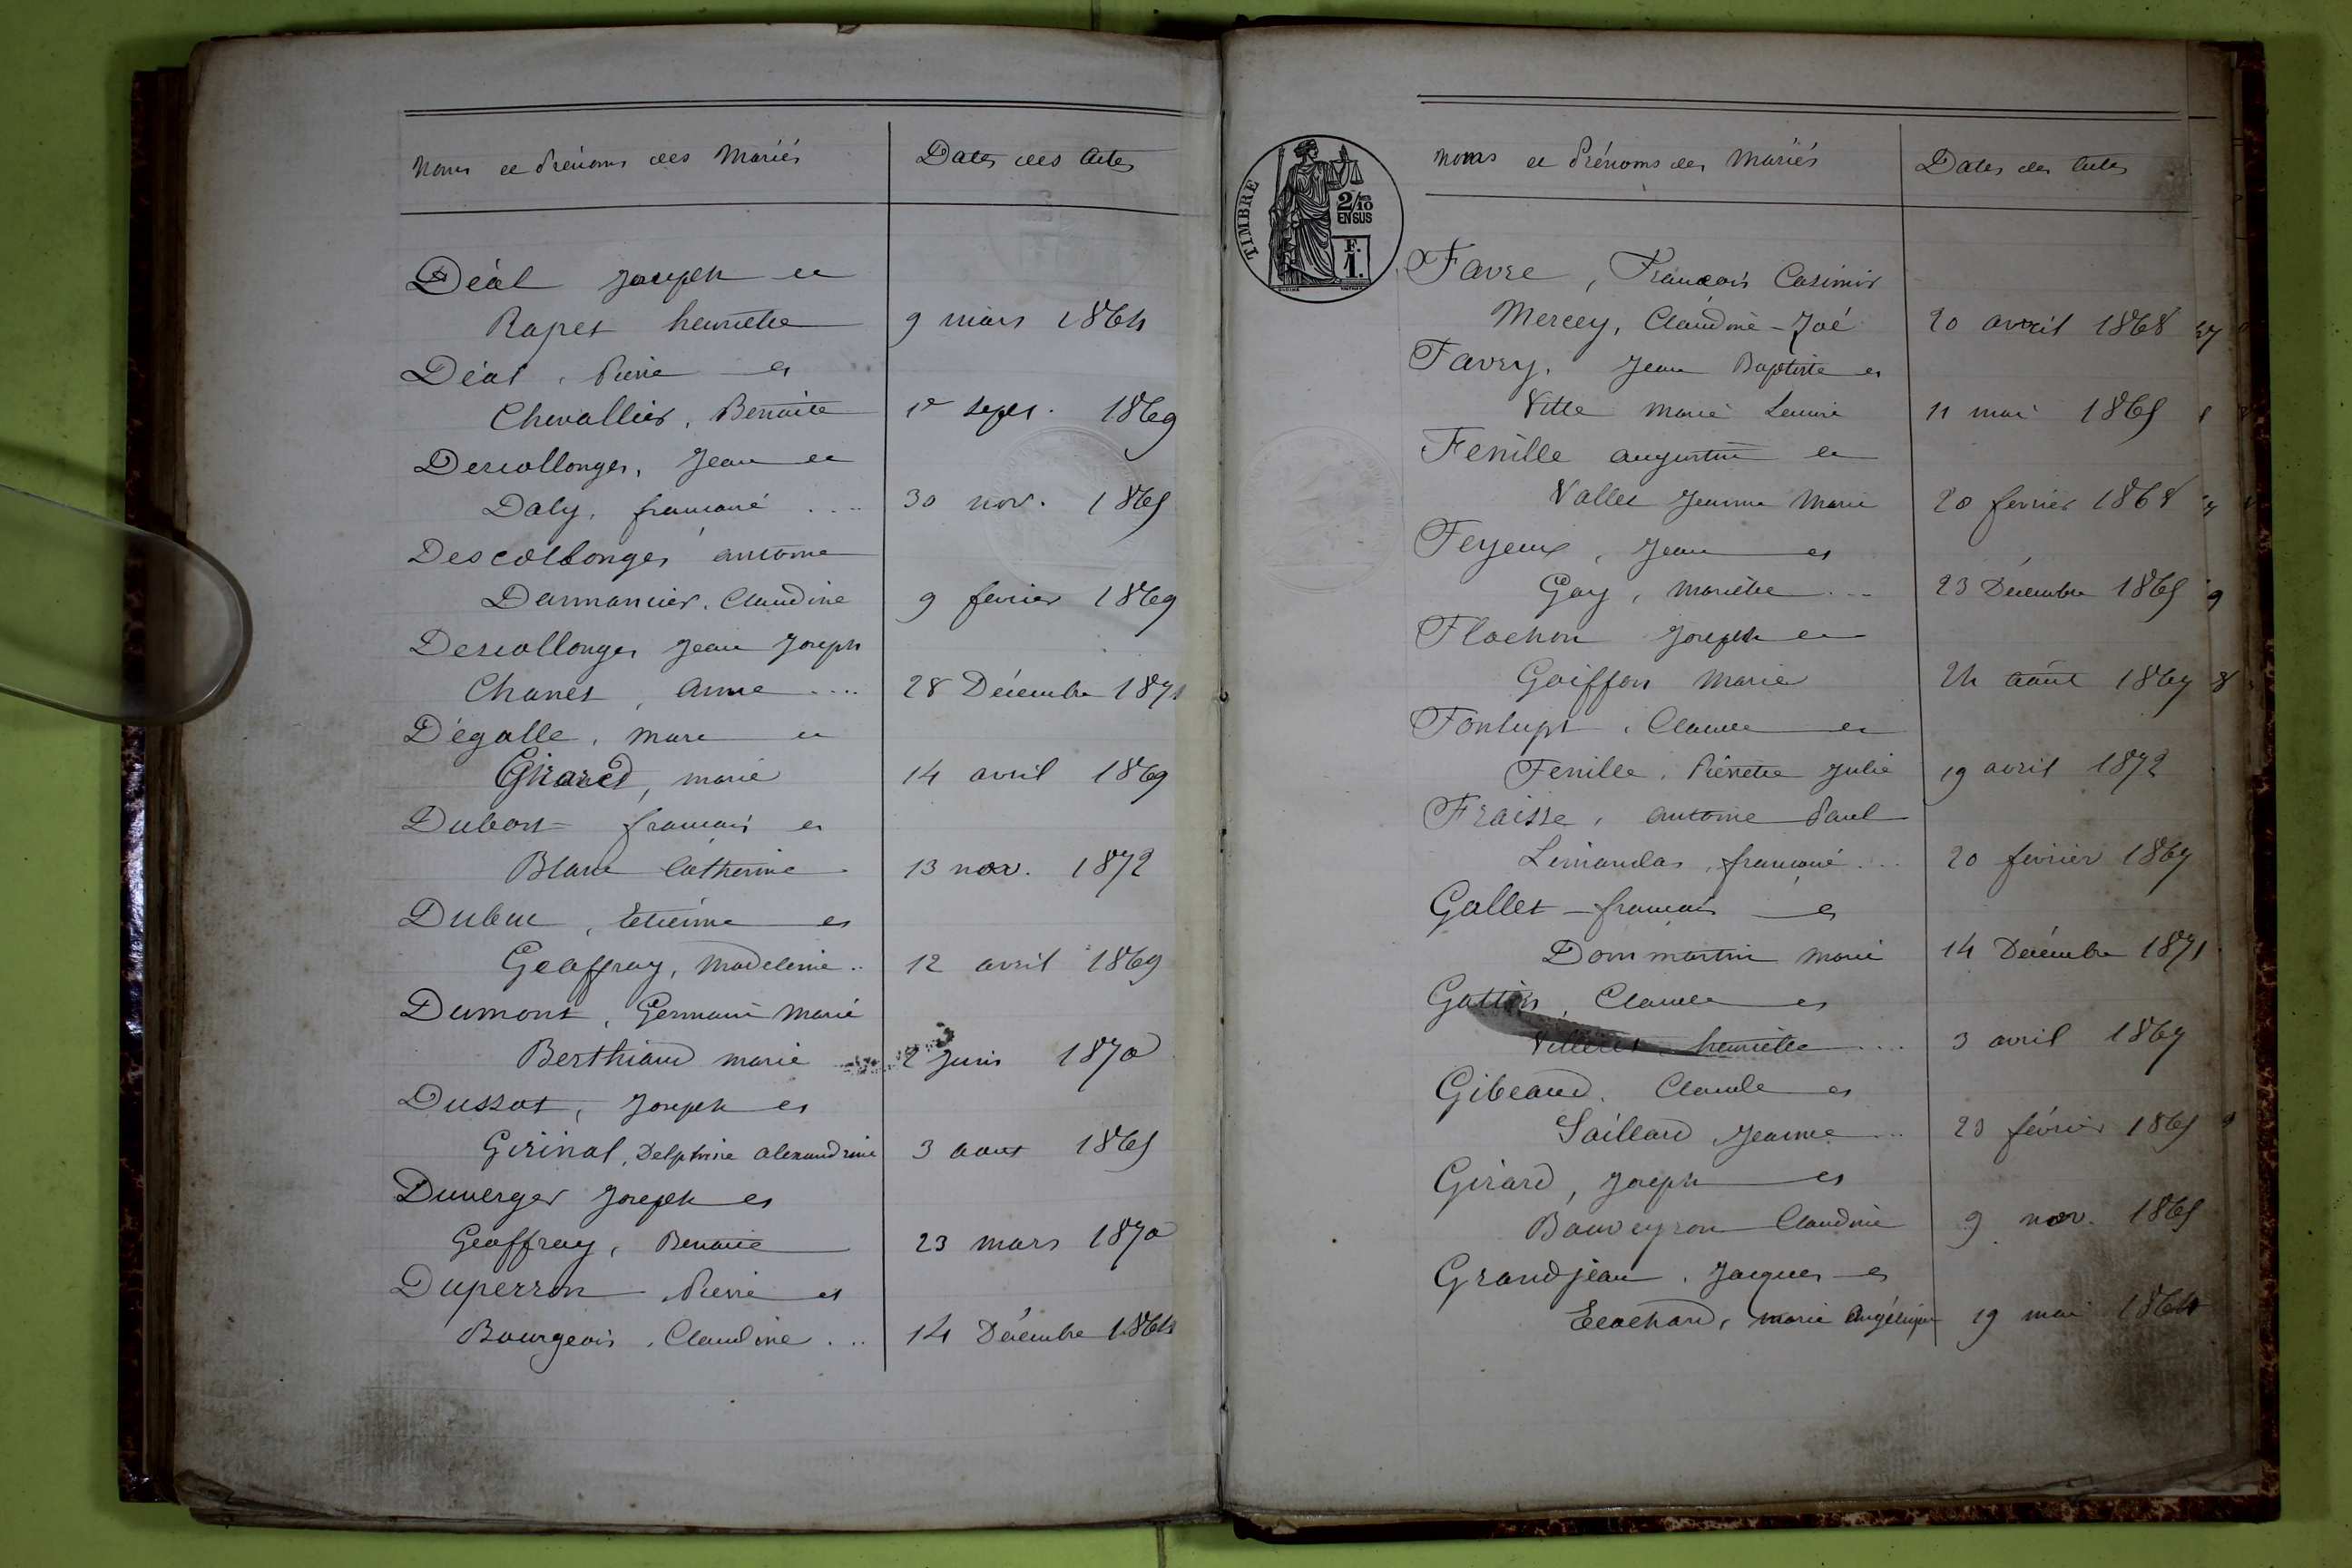 Noms et Prénoms des Mariés Dates des Actes
Déal Joseph et
Rapet henriette 9 mars 1864
Déal, Pierre et
Chevallier, Benoite 1er sept. 1869
Descollonges, Jean et
Daly, françoise .... 30 nov. 1865
Descollonges antoine
Damancier, Claudine 9 février 1869
Descollonges Jean Joseph
Chanet, Anne .... 28 Décembre 1871
Dégalle, Marc et
Girard, marie 14 avril 1869
Dubost françois et
Blanc Catherine 13 nov. 1872
Dubuc, Etienne et
Geoffray, Madeleine .. 12 avril 1869
Dumont, Germain Marie
Berthiaud marie 2 Juin 1870
Dussot, Joseph et
Girinal, Delphine alexandrine 3 aout 1865
Duverger Joseph et
Geoffray, Benoite 23 mars 1870
Duperron Pierre et
Bourgeois, Claudine ... 14 Décembre 1864
TIMBRE
2/10
EN SUS
F.
1.
Noms et Prénoms des Mariés Dates des Actes
Favre, François Casimir
Mercey, Claudine-Zoé 20 avril 1868
Favry, Jean Baptiste et
Vitte Marie Louise 11 mai 1865
Fenille augustin et
Vallet Jeanne Marie 20 fevrier 1868
Feyeux, Jean et
Gay, Mariette ... 23 Décembre 1865
Flochon Joseph et
Goiffon Marie 24 août 1867
Fonlupt, Claude et
Fenille, Pierrette Julie 19 avril 1872
Fraisse, antoine Paul
Limandas, françoise ... 20 février 1867
Gallet françois et
Dommartin Marie 14 Décembre 1871
Gottin, Claude et
henriette .... 3 avril 1867
Gibeaud, Claude et
Saillard Jeanne ... 23 février 1865
Girard, Joseph et
Bouveyron Claudine 9 nov. 1865
Grandjean, Jacques et
Ecochard, Marie Angélique 19 mai 1864